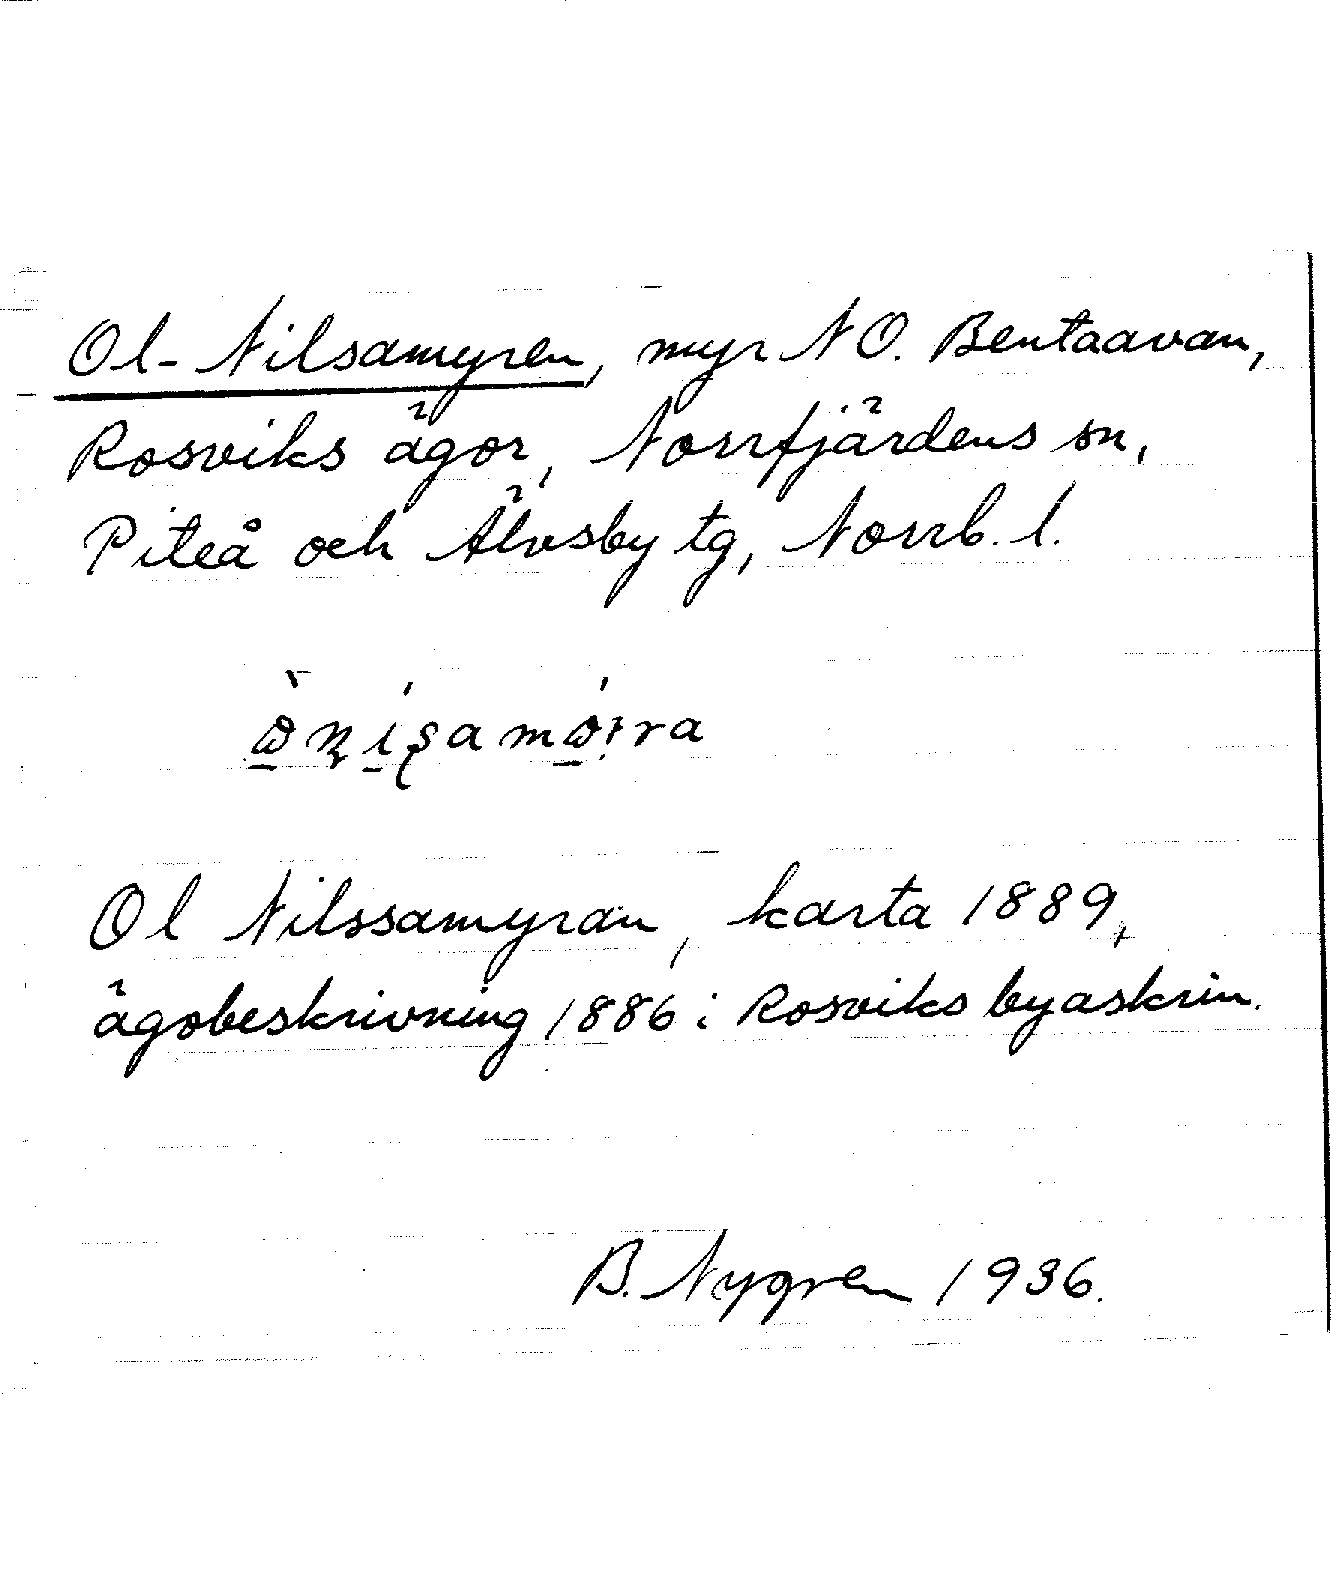 Ol-Nilsamyren, myr NO. Bentaavan,
Rosviks ägor, Norrfjärdens sn,
Piteå och Älvsby tg, Norrb. l.
Ol Nilssamyran, karta 1889,
ägobeskrivning 1886 i Rosviks byaskrin.
B. Nygren 1936.